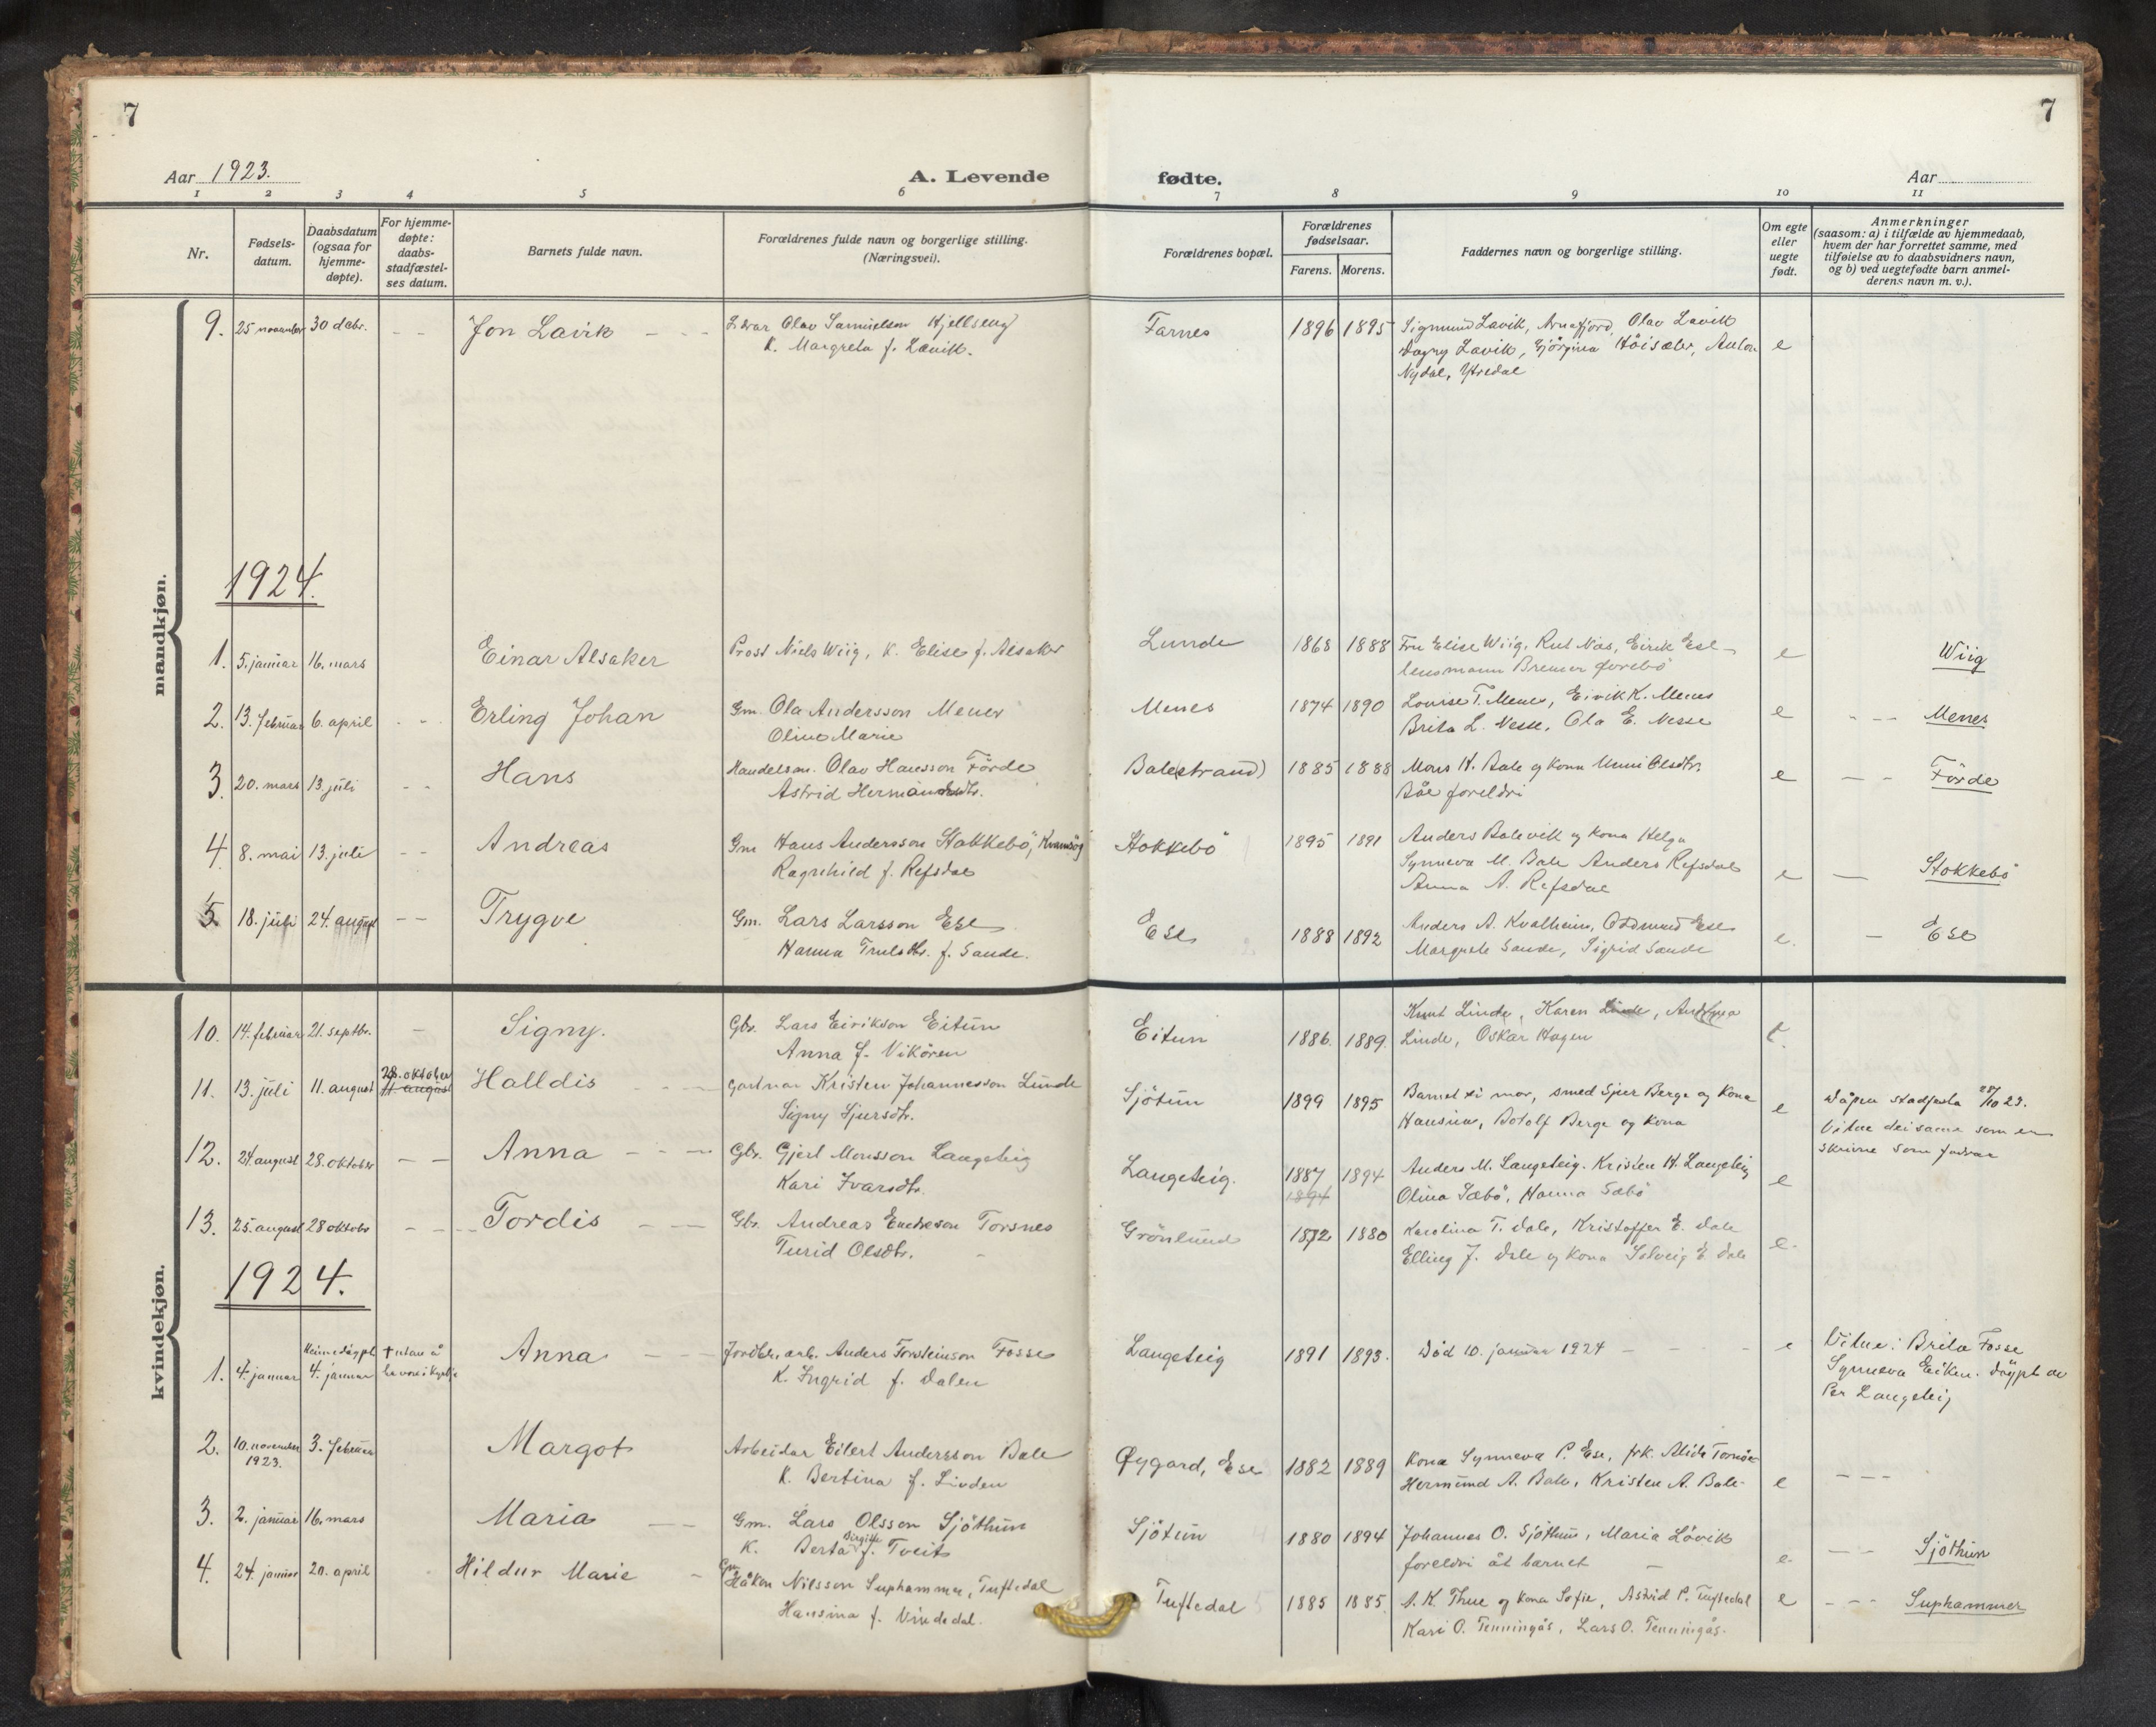 7
7
Aar 1923.
A. Levende fødte.
Aar
1 2 3 4 5 6 7 8 9 10 11
Nr.
Fødsels-
datum.
Daabsdatum
(ogsaa for
hjemme-
døpte).
For hjemme-
døpte:
daabs-
stadfæstel-
ses datum.
Barnets fulde navn.
Forældrenes fulde navn og borgerlige stilling.
(Næringsvei).
Forældrenes bopæl.
Forældrenes
fødselsaar.
Farens. Morens.
Faddernes navn og borgerlige stilling.
Om egte
eller
uegte
født.
Anmerkninger
(saasom: a) i tilfælde av hjemmedaab,
hvem der har forrettet samme, med
tilføielse av to daabsvidners navn,
og b) ved uegtefødte barn anmel-
derens navn m. v.).
mandkjøn.
9. 25 november 30 decbr. - - Jon Lavik - - Olav Samuelsen Hjellseng Farnes 1896 1895 Sigmund Lavik, Arnafjord, Olav Lavik e
K. Margreta f. Lavik. Dagny Lavik, Gjörgina Höisæter, Anton
Nydal, Ytredal
1924.
1. 5. januar 16. mars Einar Alsaker Prost Niels Wiig, K. Elise f. Alsaker Lunde 1868 1888 Fru Elise Wiig, Rut Næs, Eirik Ese e Wiig
lensmann Bremer
2. 13. februar 6. april - - Erling Johan Gm. Ola Andersson Menes Menes 1874 1890 Lovise T. Menes, Eivik K. Menes e - - - Menes
Oline Marie Brita L. Nesse, Ola E. Nesse
3. 20. mars 13. juli - - Hans Handelsm. Olav Hansson Förde Bale(strand) 1885 1888 Mons H. Bale og kona Unni Olsdtr. e - - Förde
Astrid Hermansdtr. Båe foreldri
4. 8. mai 13. juli - - Andreas Gm Hans Andersson Stokkebö, Kvamsøy Stokkebö 1895 1891 Anders Balevik og kona Helga e - Stokkebö
Ragnhild f. Refsdal Synneva M. Bale Anders Refsdal
Anna A. Refsdal
5. 18. juli 24. august - - Trygve Gm. Lars Larsson Ese Ese 1888 1892 Anders A. Kvalheim, Oddmund Ese e. - Ese
Hanna Trulsdtr. f. Sande. Margrete Sande, Sigrid Sande
kvindekjøn.
10. 14. februar 21. septbr. - Signy. Gbr. Lars Eirikson Eitun Eitun 1886. 1889. Knut Linde, Karen Linde,
Anna f. Vikören Linde, Oskar Hagen
11. 13. juli 11. august 28. oktober Halldis - - - gartnar Kristen Johannesson Lunde Sjötun 1899 1895 Barnet si mor, smed Sjur Berge og kona e Dåpen stadfesta 28/10 23.
11. august Signy Sjursdtr. Hansina, Botolf Berge og kona Vitne dei same som er
skrivne som fadrar
12. 24 august 28. oktober - - Anna - - - Gbr. Gjert Monsson Langeteig Langeteig. 1887 1894 Anders M. Langeteig. Kristen H. Langeteig e
Kari Ivarsdtr. 1894 Olina Sæbö, Hanna Sæbö
13. 25. august 28 oktobr - - - Tordis - - Gbr. Andreas Endreson Torsnes Grönlund 1872 1880 Karolina T. Dale, Kristoffer E. Dale e.
Turid Olsdtr. Elling J. Dale og kona Solveig E. Dale
1924.
1. 4. januar Heimedöypt 4. januar † utan å Anna - - - Jordbr. arb. Anders Torsteinson Fosse Langeteig 1891 1893. Död 10. januar 1924 - - - e Vitne: Brita Fosse
ha vore i kyrkje K. Ingrid f. Dalen Synneva Eiken. Döypt av
Per Langeteig
2. 10. november 3. februar Margot Arbeidar Eilert Andersson Bale Øygard, Ese 1882 1889 Kona Synneva P. Ese, frk. Alida e - - -
1923. K. Bertina f. Linden Hermund A. Bale, Kristen A. Bale
3. 2. januar 16. mars Maria - - Gm. Lars Olsson Sjöthun Sjötun 1880 1894 Johannes O. Sjöthun, Maria Lövik e. - - Sjöthun
K. Berta Birgitte f. Tveit foreldri åt barnet -
4. 24. januar 20. april Hildur Marie - Gm. Håkon Nilsson Suphammer, Tuftedal Tuftedal 1885 1885. A. K. Thue og kona Sofie, Astrid P. Tuftedal e - - - Suphammer
Hansina f. Vindedal. Kari O. Tenningås, Lars O. Tenningås.